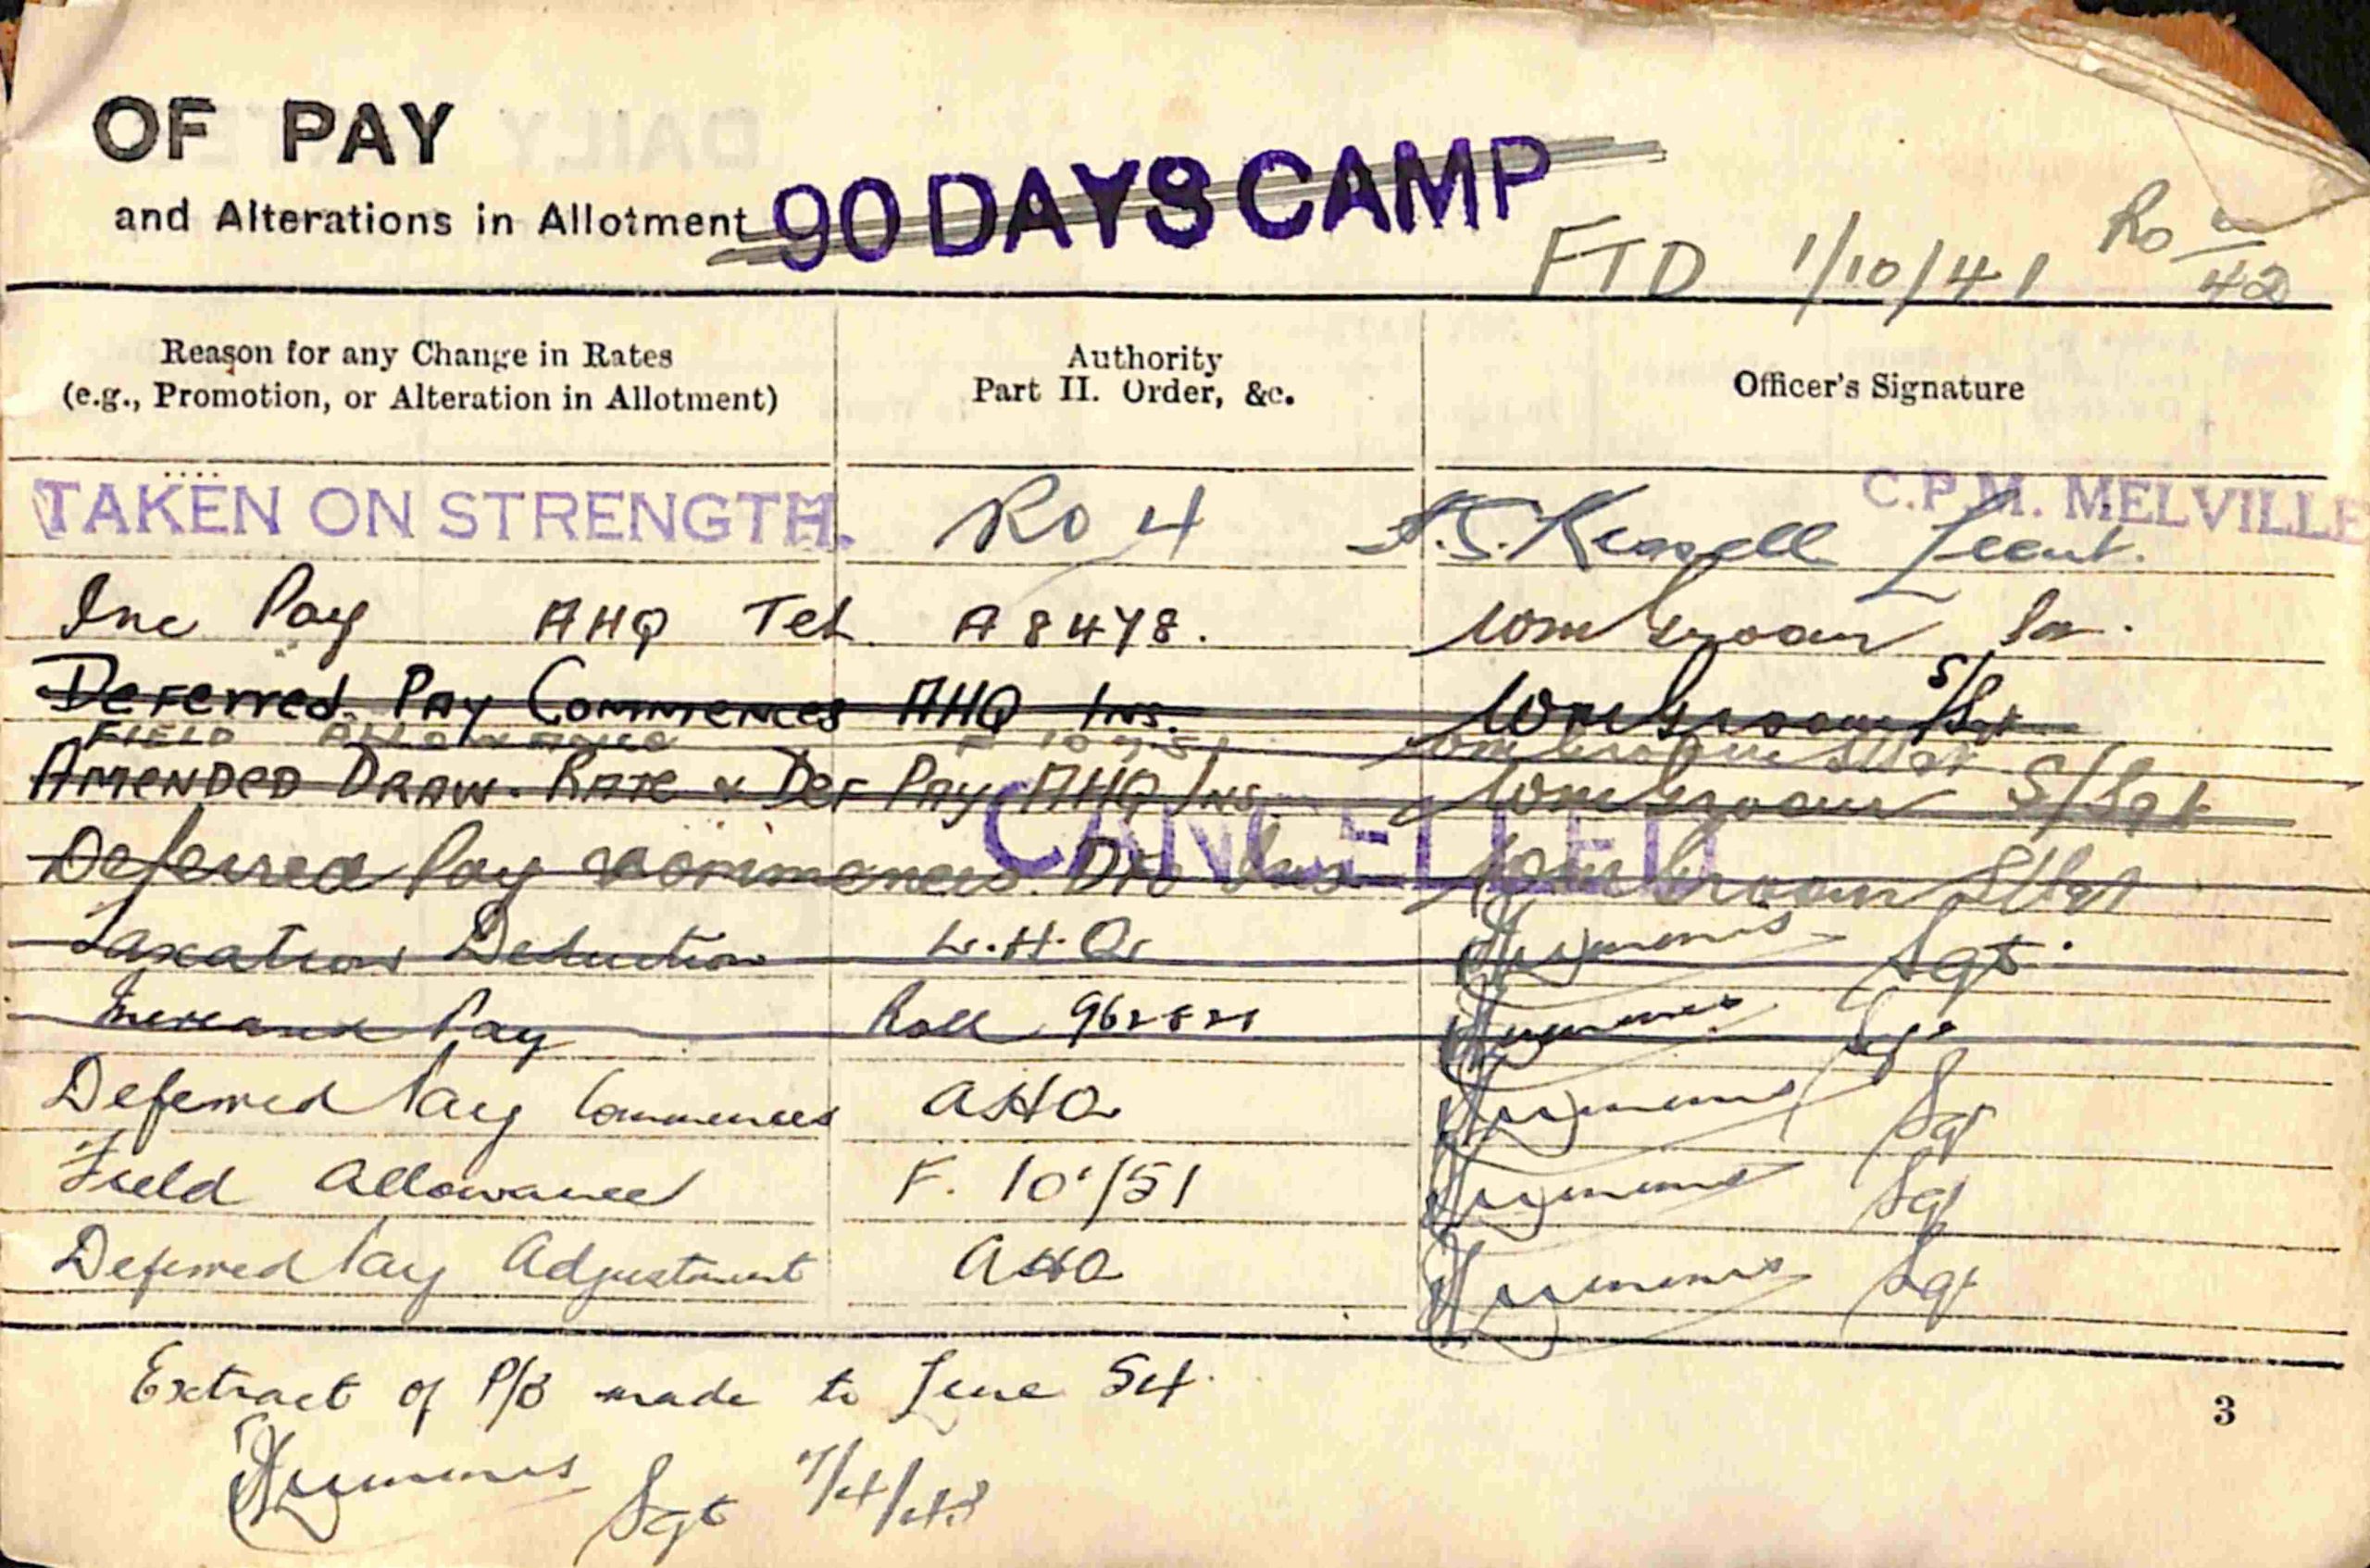 OF PAY
and Alterations in Allotment 90 DAYS CAMP
FTD 1/10/41 Ro 42
Reason for any Change in Rates
(e.g., Promotion, or Alteration in Allotment)
Authority
Part II. Order, &c.
Officer's Signature
C.P.M. MELVILLE
TAKEN ON STRENGTH. Ro 4 Lieut.
Inc Pay AHQ Tel A 8478.
Deferred Pay Commences AHQ Ins. S/Sgt
FIELD ALLOWANCE
AMENDED DRAW. RATE & Def Pay AHQ Ins S/Sgt
CANCELLED
Deferred Pay commences Ins S/Sgt
Taxation Deduction L.H.Q. Sgt.
Increase Pay Roll Sgt
Deferred Pay Commences AHQ Sgt
Field Allowance F. 10'/51 Sgt
Deferred Pay Adjustment AHQ Sgt
Extract of P/B made to June
3
Sgt 7/4/43